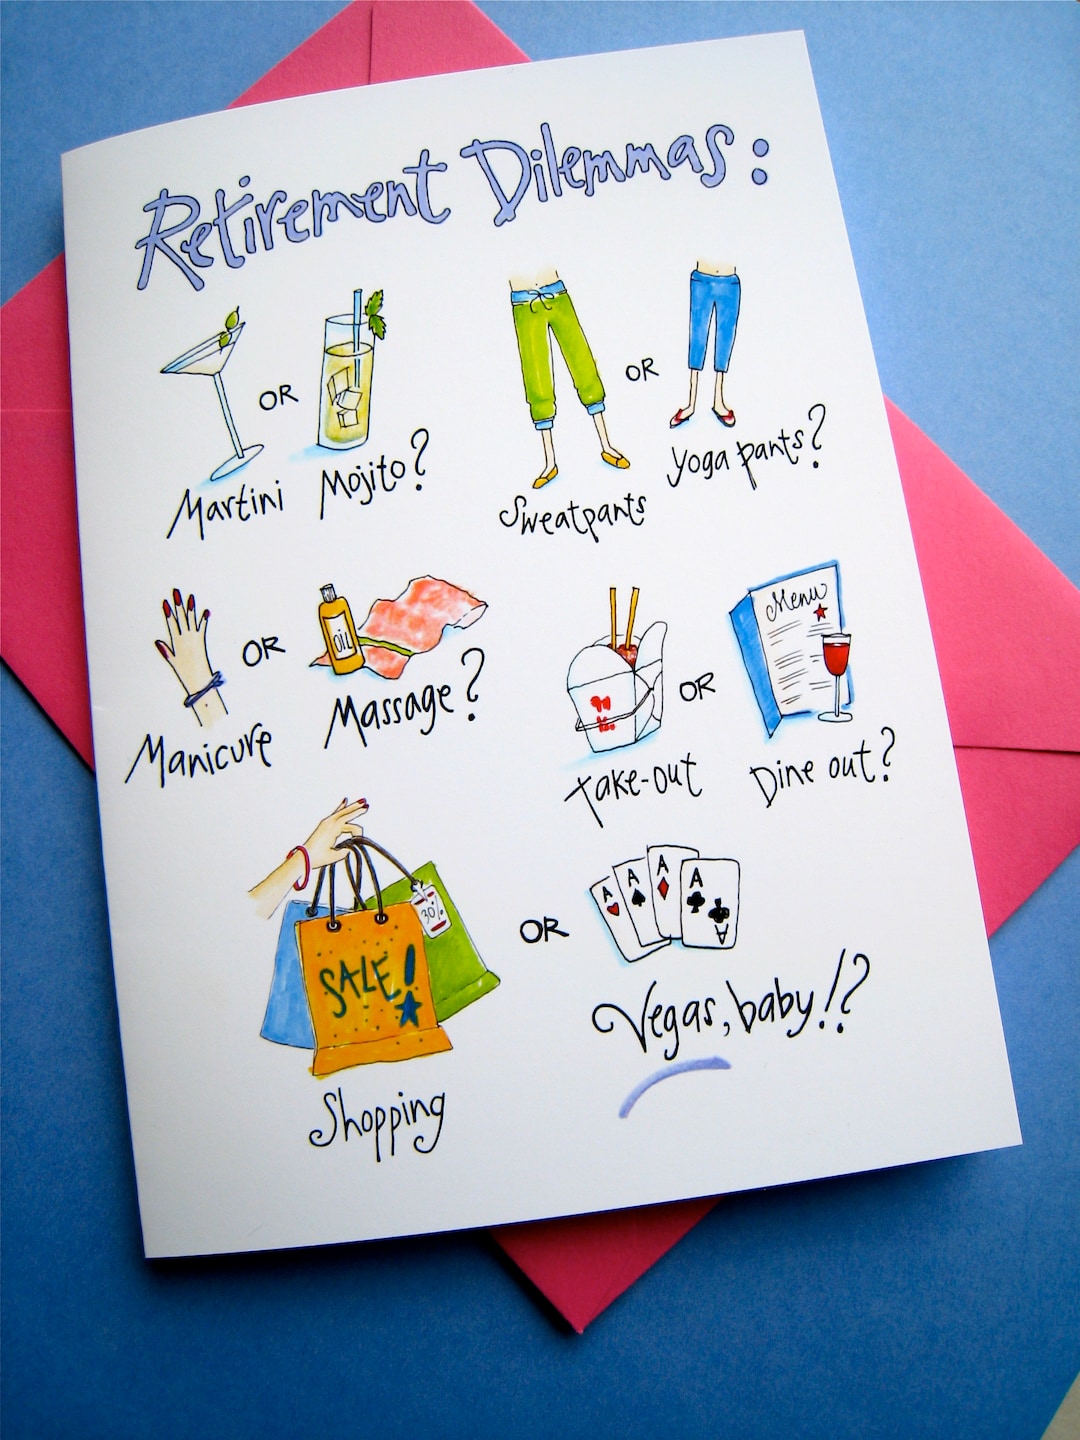 Retirement Dilemmas:
Martini OR Mojito?
Sweatpants OR Yoga pants?
OIL
Manicure OR Massage?
Menu
Take-out OR Dine out?
30%
SALE!
Shopping
OR
A A A A A
Vegas, baby!?